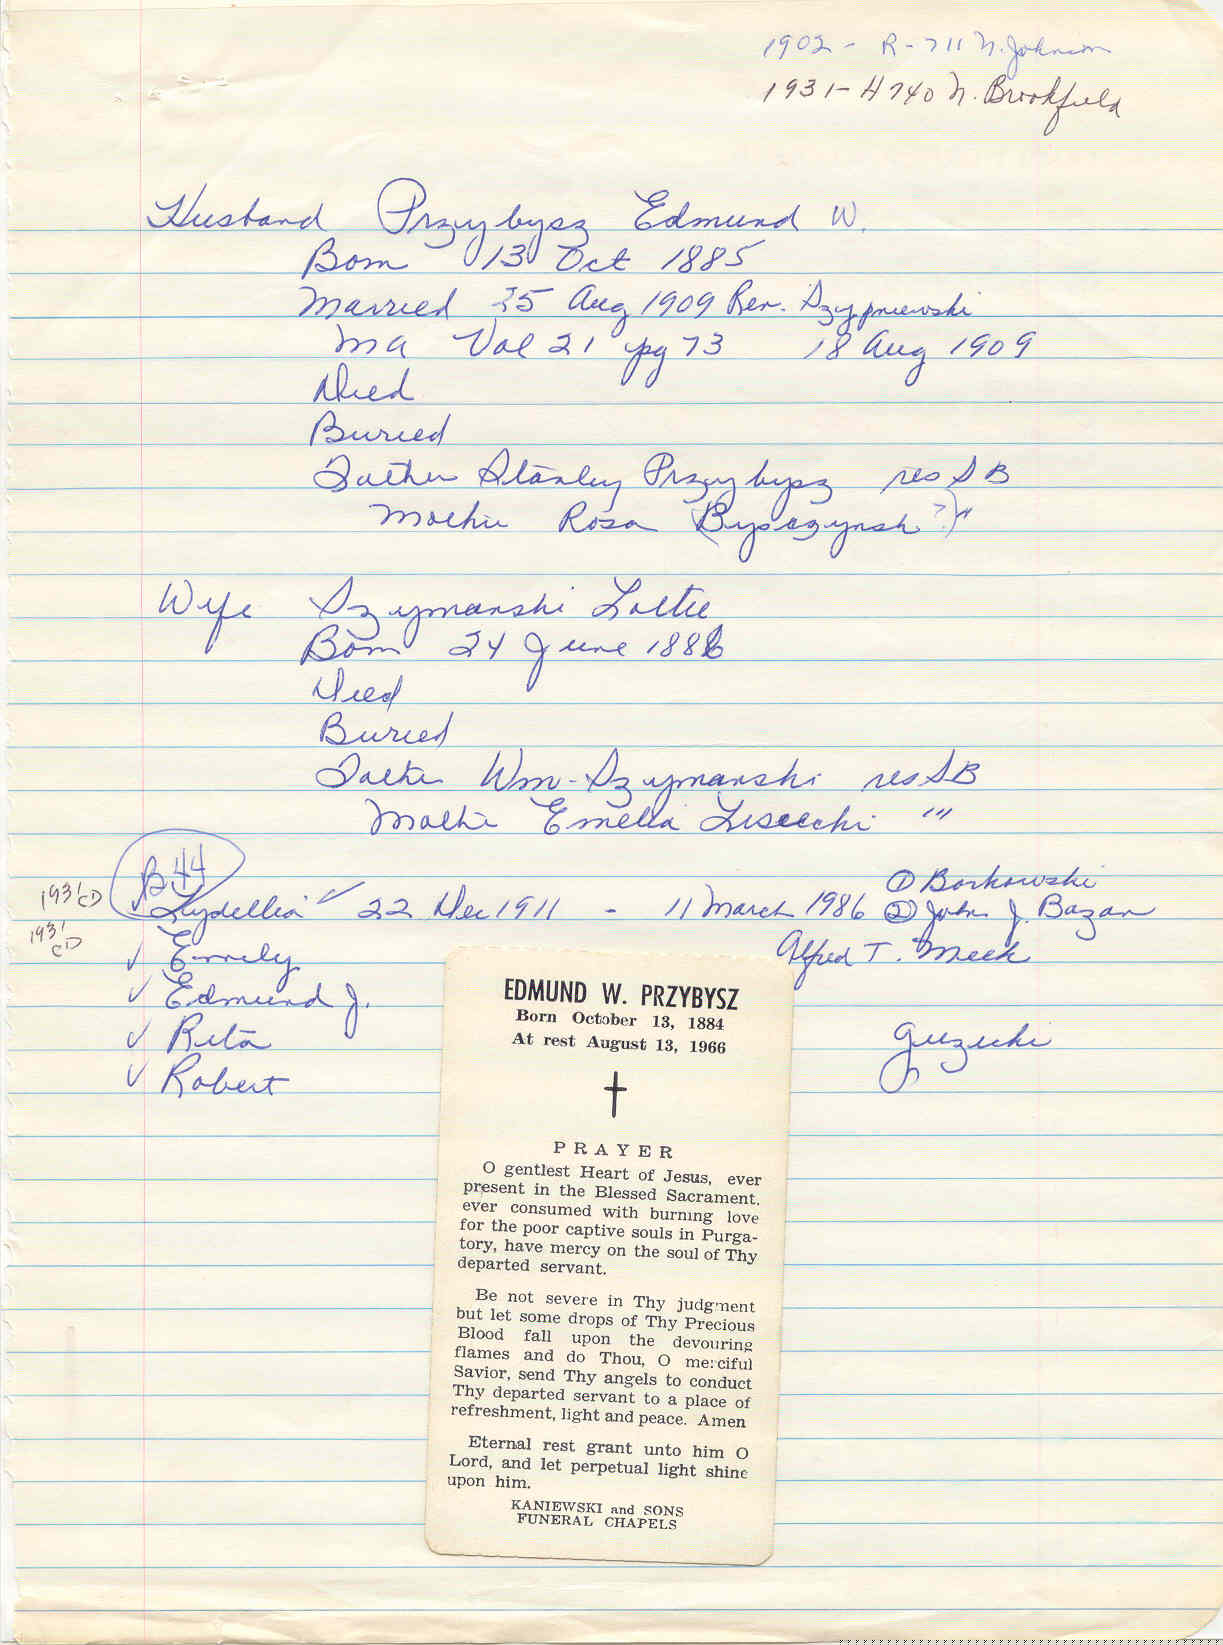 1902 - R-711 N. Johnson
1931- H 740 N. Brookfield
Husband Przybysz Edmund W.
Born 13 Oct 1885
Married 25 Aug 1909 Rev. Szypniewski
Ma Vol 21 pg 73 18 Aug 1909
Died
Buried
Father Stanley Przybysz res SB
Mother Rosa (Bysczynsk ?) "
Wife Szymanski Lottie
Born 24 June 1886
Died
Buried
Father Wm- Szymanski res SB
Mother Emelia Lisiecki "
B 44
1931 CD
① Borkowski
Lydellia ✓ 22 Dec 1911 - 11 March 1986 ② John J. Bazan
1931 CD
✓ Emily Alfred T. Meek
✓ Edmund J.
✓ Rita Guzicki
✓ Robert
EDMUND W. PRZYBYSZ
Born October 13, 1884
At rest August 13, 1966
PRAYER
O gentlest Heart of Jesus, ever
present in the Blessed Sacrament.
ever consumed with burning love
for the poor captive souls in Purga-
tory, have mercy on the soul of Thy
departed servant.
Be not severe in Thy judgment
but let some drops of Thy Precious
Blood fall upon the devouring
flames and do Thou, O merciful
Savior, send Thy angels to conduct
Thy departed servant to a place of
refreshment, light and peace. Amen
Eternal rest grant unto him O
Lord, and let perpetual light shine
upon him.
KANIEWSKI and SONS
FUNERAL CHAPELS